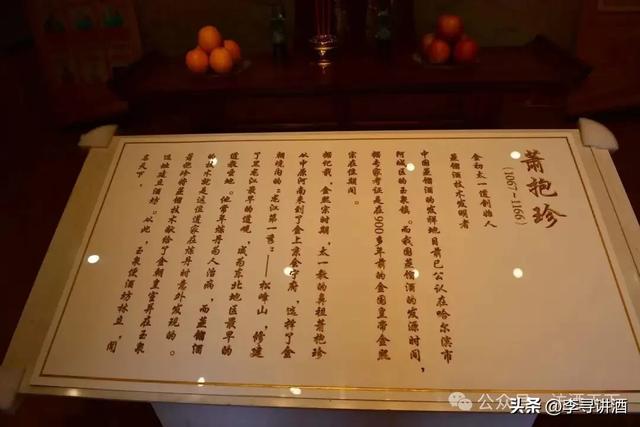 萧抱珍
(1067—1166)
金初太一道创始人
蒸馏酒技术发明者
中国蒸馏酒的发祥地目前已公认在哈尔滨市
阿城区的玉泉镇。而我国蒸馏酒的发源时间，
据专家考证是在900多年前的金国皇帝金熙
宗在位期间。
据记载，金熙宗时期，太一教的鼻祖萧抱珍
从中原河南来到了金上京会宁府，选择了金
朝境内的“龙江第一峰”——松峰山，修建
了黑龙江最早的道观，成为东北地区最早的
道教圣地。他常年炼丹为人治病，而蒸馏酒
的技术就是这位道家在炼丹时意外发现的。
萧抱珍将蒸馏技术献给了金朝皇室并在玉泉
选址建立酒坊。从此，玉泉便酒坊林立，闻
名天下。
公众号
头条 @李寻讲酒